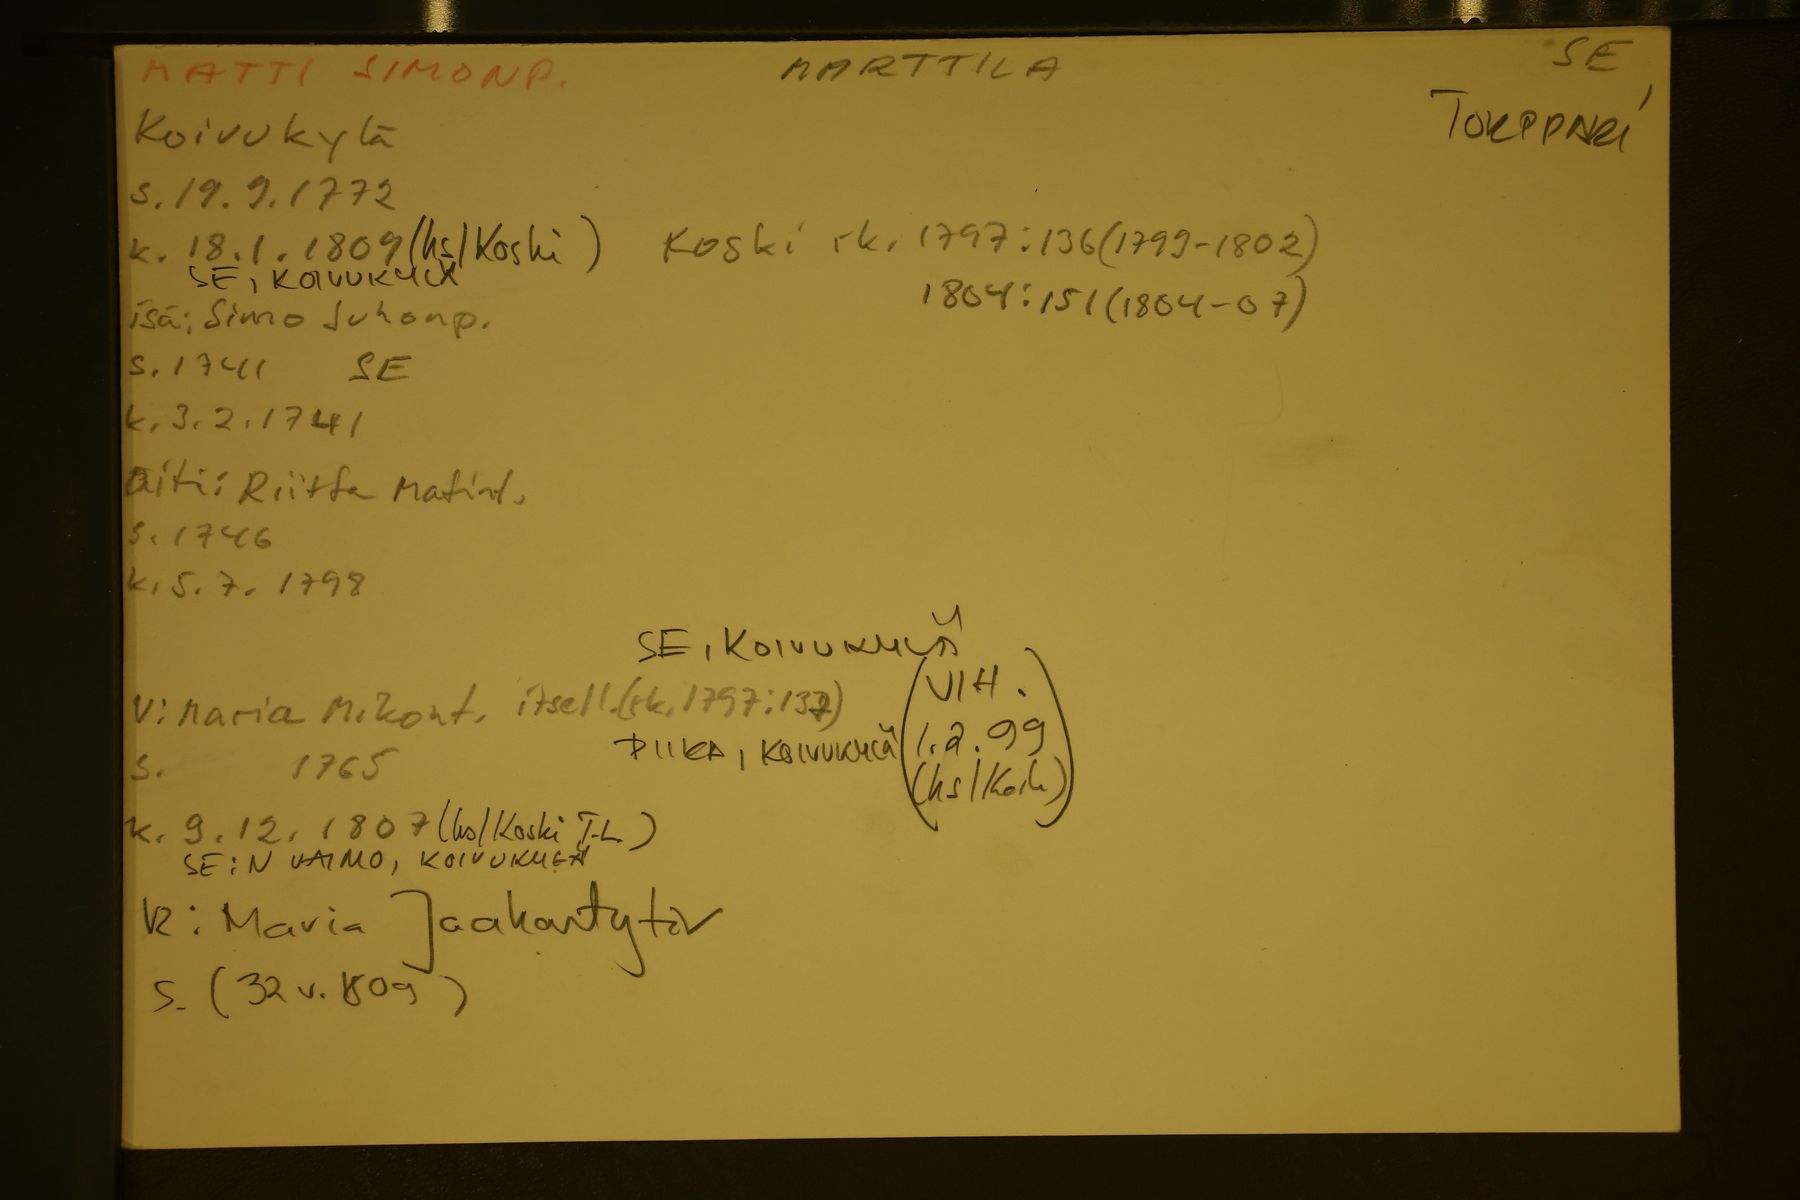 MATTI SIMONP. MARTTILA SE
TORPPARI
Koivukylä
s. 19.9.1772
k. 18.1.1809 (hs/Koski) Koski rk. 1797:136 (1799-1802)
SE, KOIVUKYLÄ 1804:151 (1804-07)
isä: Simo Juhonp.
s. 1741 SE
k. 3.2.1741
äiti: Riitta Matint.
s. 1746
k. 5.7.1798
SE, KOIVUKYLÄ
V: Maria Mikont. itsell. (rk. 1797:137) (VIH.
PIIKA, KOIVUKYLÄ 1.2.99
s. 1765 (hs/Koski)
k. 9.12.1807 (hs/Koski T.L)
SE:N VAIMO, KOIVUKYLÄ
V2: Maria Jaakontytär
s. (32 v. 1809)